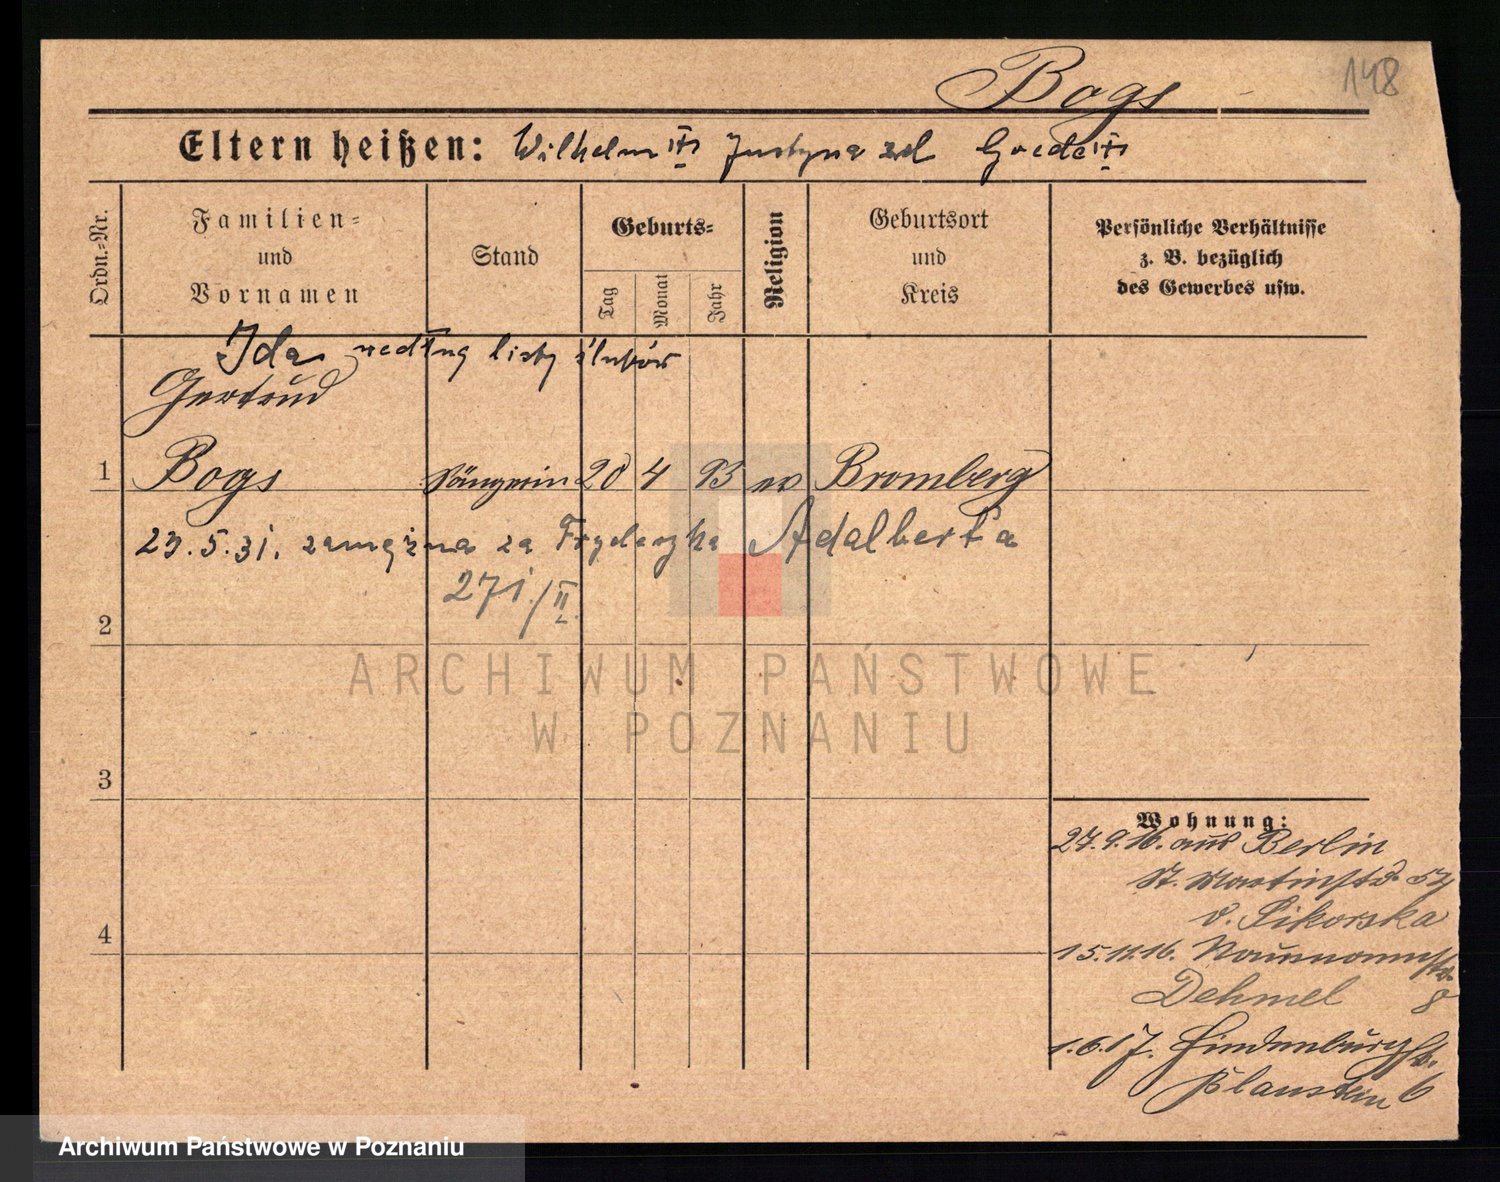 Bogs
148
Eltern heißen: Wilhelm Justyna zd
Ordn.-Nr.
Familien-
und
Vornamen
Stand
Geburts-
Tag
Monat
Jahr
Religion
Geburtsort
und
Kreis
Persönliche Verhältnisse
z. B. bezüglich
des Gewerbes usw.
Ida według listy ślubów
Gertrud
1 Bogs Sängerin 20 4 93 ev Bromberg
23.5.31. zamężna za Fryderyka Adalberta
271/II
2
3
4
Wohnung:
27.9.16. aus Berlin
St. Martinstr.
v. Sikorska
15.11.16. Naumannstr.
Dehmel 8
1.6.17. Hindenburgstr.
Blaustein 6
ARCHIWUM PAŃSTWOWE
W POZNANIU
Archiwum Państwowe w Poznaniu